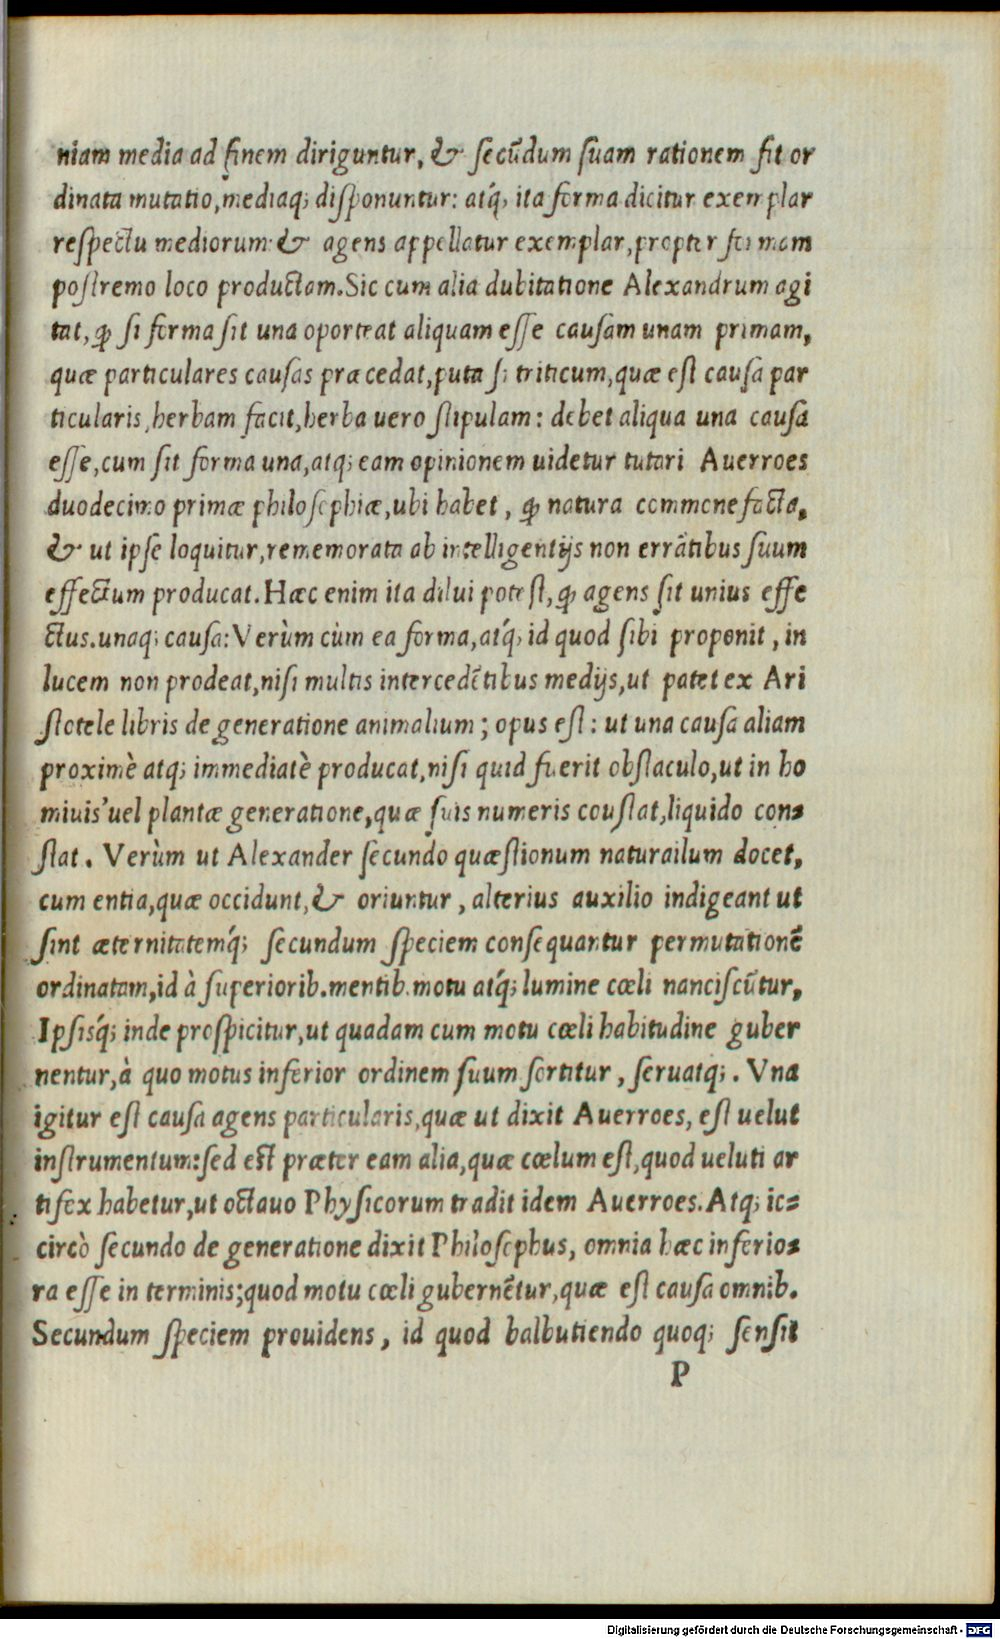 niam media ad finem diriguntur, & secūdum suam rationem fit or
dinata mutatio, mediaq; disponuntur: atq́; ita forma dicitur exemplar
respectu mediorum: & agens appellatur exemplar, propter formam
postremo loco productam. Sic cum alia dubitatione Alexandrum agi
tat, ꝙ si forma sit una oporteat aliquam esse causam unam primam,
quæ particulares causas præcedat, puta si triticum, quæ est causa par
ticularis, herbam facit, herba uero stipulam: debet aliqua una causa
esse, cum sit forma una, atq; eam opinionem uidetur tutari Auerroes
duodecimo primæ philosophiæ, ubi habet, ꝙ natura commonefacta,
& ut ipse loquitur, rememorata ab intelligentijs non errātibus suum
effectum producat. Hæc enim ita dilui potest, ꝙ agens sit unius effe
ctus. unaq; causa: Verùm cùm ea forma, atq́; id quod sibi proponit, in
lucem non prodeat, nisi multis intercedētibus medijs, ut patet ex Ari
stotele libris de generatione animalium; opus est: ut una causa aliam
proximè atq; immediatè producat, nisi quid fuerit obstaculo, ut in ho
miuis' uel plantæ generatione, quæ suis numeris coustat, liquido con=
stat. Verùm ut Alexander secundo quæstionum naturailum docet,
cum entia, quæ occidunt, & oriuntur, alterius auxilio indigeant ut
sint æternitatemq́; secundum speciem consequantur permutationē
ordinatam, id à superiorib. mentib. motu atq́; lumine cœli nanciscūtur,
Ipsisq́; inde prospicitur, ut quadam cum motu cœli habitudine guber
nentur, à quo motus inferior ordinem suum sortitur, seruatq;. Vna
igitur est causa agens particularis, quæ ut dixit Auerroes, est uelut
instrumentum: sed est præter eam alia, quæ cœlum est, quod ueluti ar
tifex habetur, ut octauo Physicorum tradit idem Auerroes. Atq; ic=
circò secundo de generatione dixit Philosophus, omnia hæc inferio=
ra esse in terminis; quod motu cœli gubernētur, quæ est causa omnib.
Secundum speciem prouidens, id quod balbutiendo quoq; sensit
P
Digitalisierung gefördert durch die Deutsche Forschungsgemeinschaft - DFG